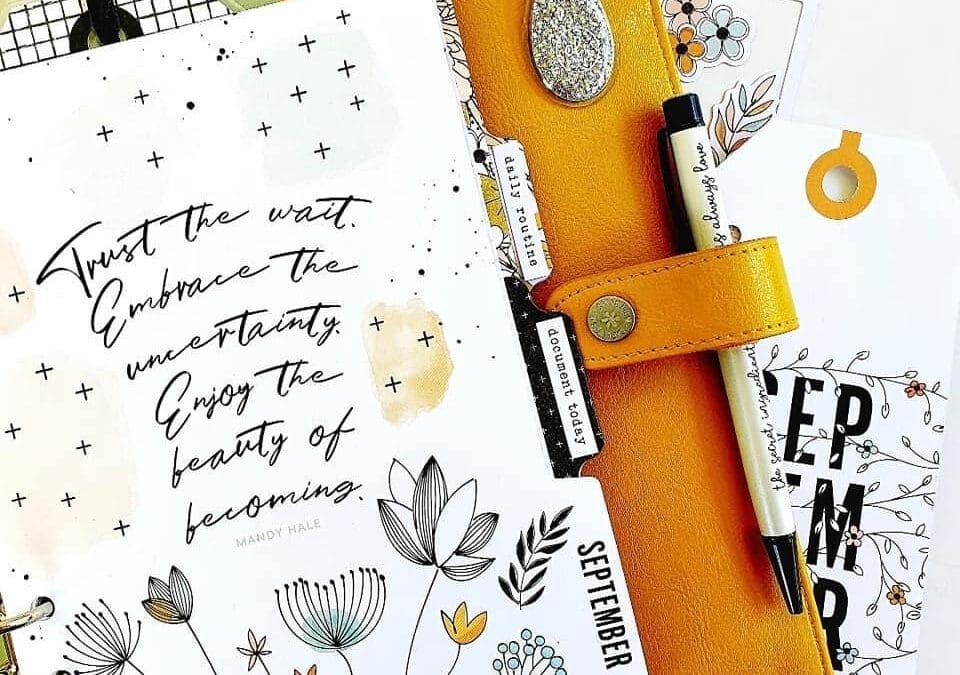 Trust the wait.
Embrace the
uncertainty.
Enjoy the
beauty of
becoming.
MANDY HALE
daily routine
document today
SEPTEMBER
the secret ingredient
is always love
SEP
EM
R